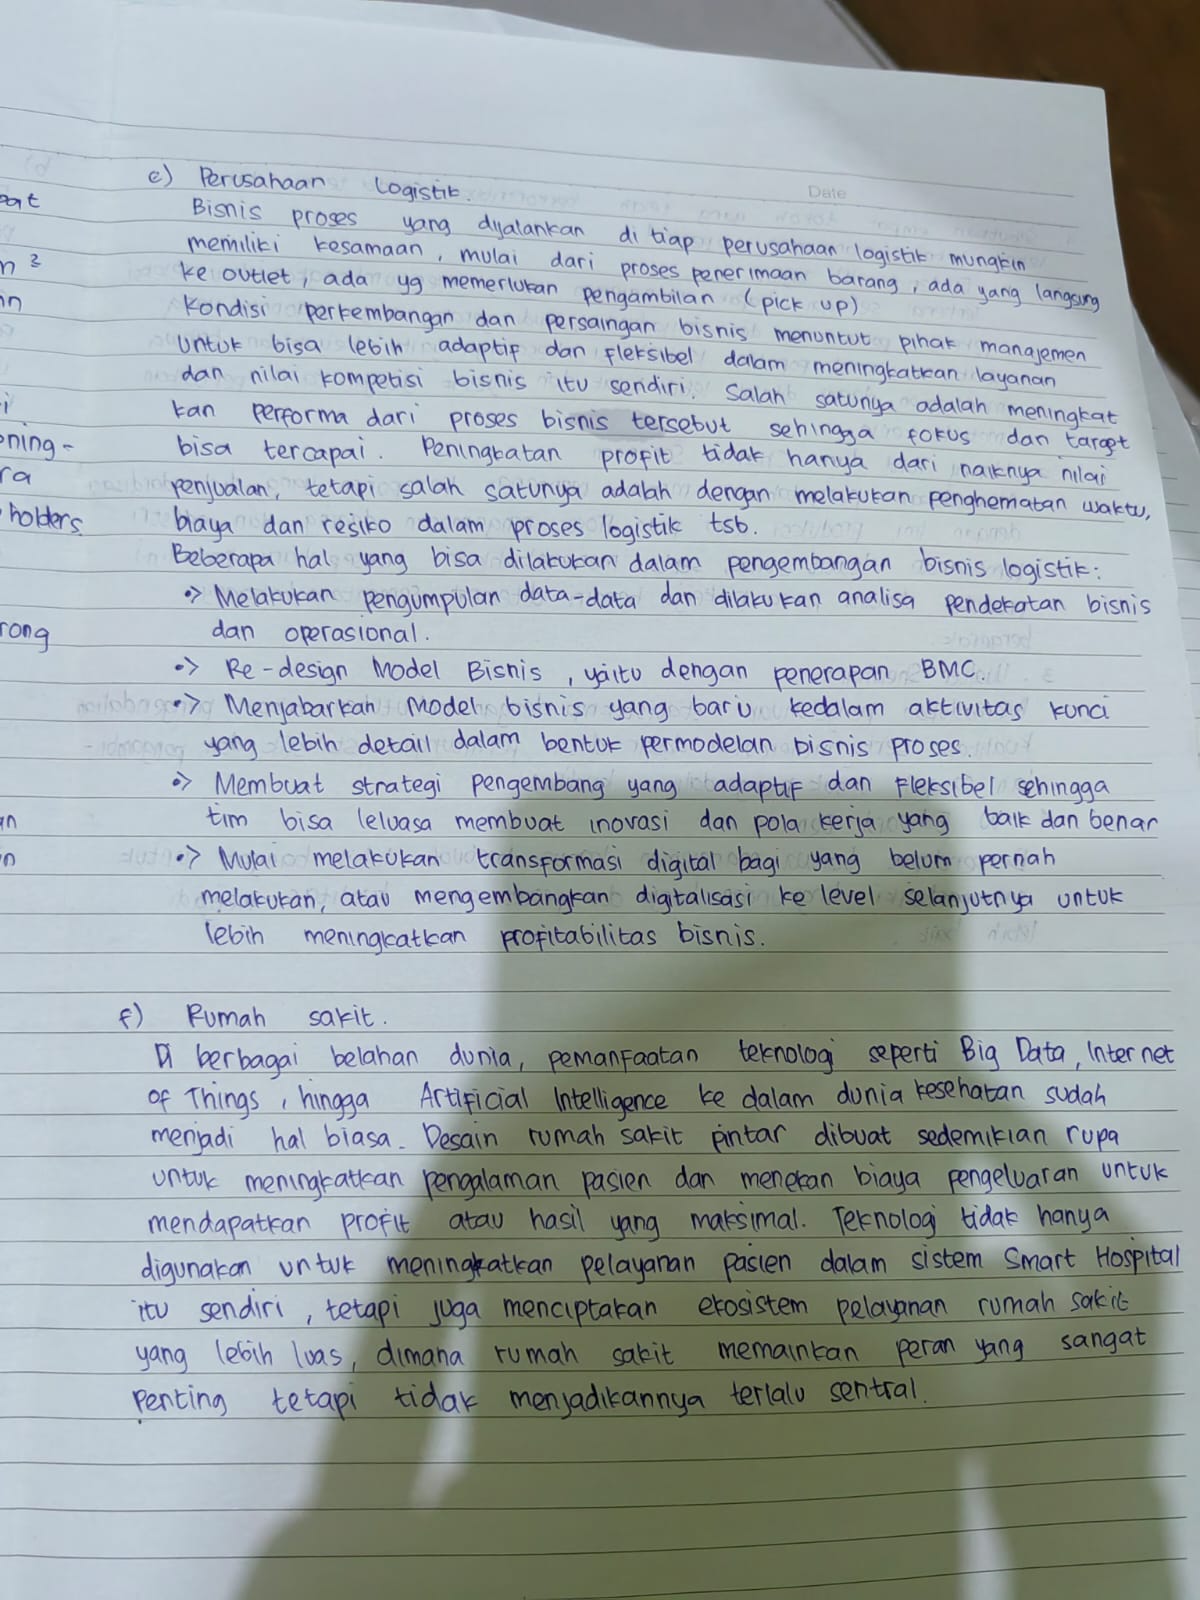 Date
e) Perusahaan Logistik.
Bisnis proses yang dijalankan di tiap perusahaan logistik mungkin
memiliki kesamaan, mulai dari proses penerimaan barang, ada yang langsung
ke outlet, ada yg memerlukan pengambilan (pick up)
Kondisi perkembangan dan persaingan bisnis menuntut pihak manajemen
untuk bisa lebih adaptif dan fleksibel dalam meningkatkan layanan
dan nilai kompetisi bisnis itu sendiri. Salah satunya adalah meningkat
kan performa dari proses bisnis tersebut sehingga fokus dan target
bisa tercapai. Peningkatan profit tidak hanya dari naiknya nilai
penjualan, tetapi salah satunya adalah dengan melakukan penghematan waktu,
biaya dan resiko dalam proses logistik tsb.
Beberapa hal yang bisa dilakukan dalam pengembangan bisnis logistik:
•> Melakukan pengumpulan data-data dan dilakukan analisa pendekatan bisnis
dan operasional.
•> Re-design Model Bisnis, yaitu dengan penerapan BMC.
•> Menjabarkan Model bisnis yang baru kedalam aktivitas kunci
yang lebih detail dalam bentuk permodelan bisnis proses.
•> Membuat strategi pengembang yang adaptif dan fleksibel sehingga
tim bisa leluasa membuat inovasi dan pola kerja yang baik dan benar
•> Mulai melakukan transformasi digital bagi yang belum pernah
melakukan, atau mengembangkan digitalisasi ke level selanjutnya untuk
lebih meningkatkan profitabilitas bisnis.
f) Rumah sakit.
Di berbagai belahan dunia, pemanfaatan teknologi seperti Big Data, Internet
of Things, hingga Artificial Intelligence ke dalam dunia kesehatan sudah
menjadi hal biasa. Desain rumah sakit pintar dibuat sedemikian rupa
untuk meningkatkan pengalaman pasien dan menekan biaya pengeluaran untuk
mendapatkan profit atau hasil yang maksimal. Teknologi tidak hanya
digunakan untuk meningkatkan pelayanan pasien dalam sistem Smart Hospital
itu sendiri, tetapi juga menciptakan ekosistem pelayanan rumah sakit
yang lebih luas, dimana rumah sakit memainkan peran yang sangat
penting tetapi tidak menjadikannya terlalu sentral.